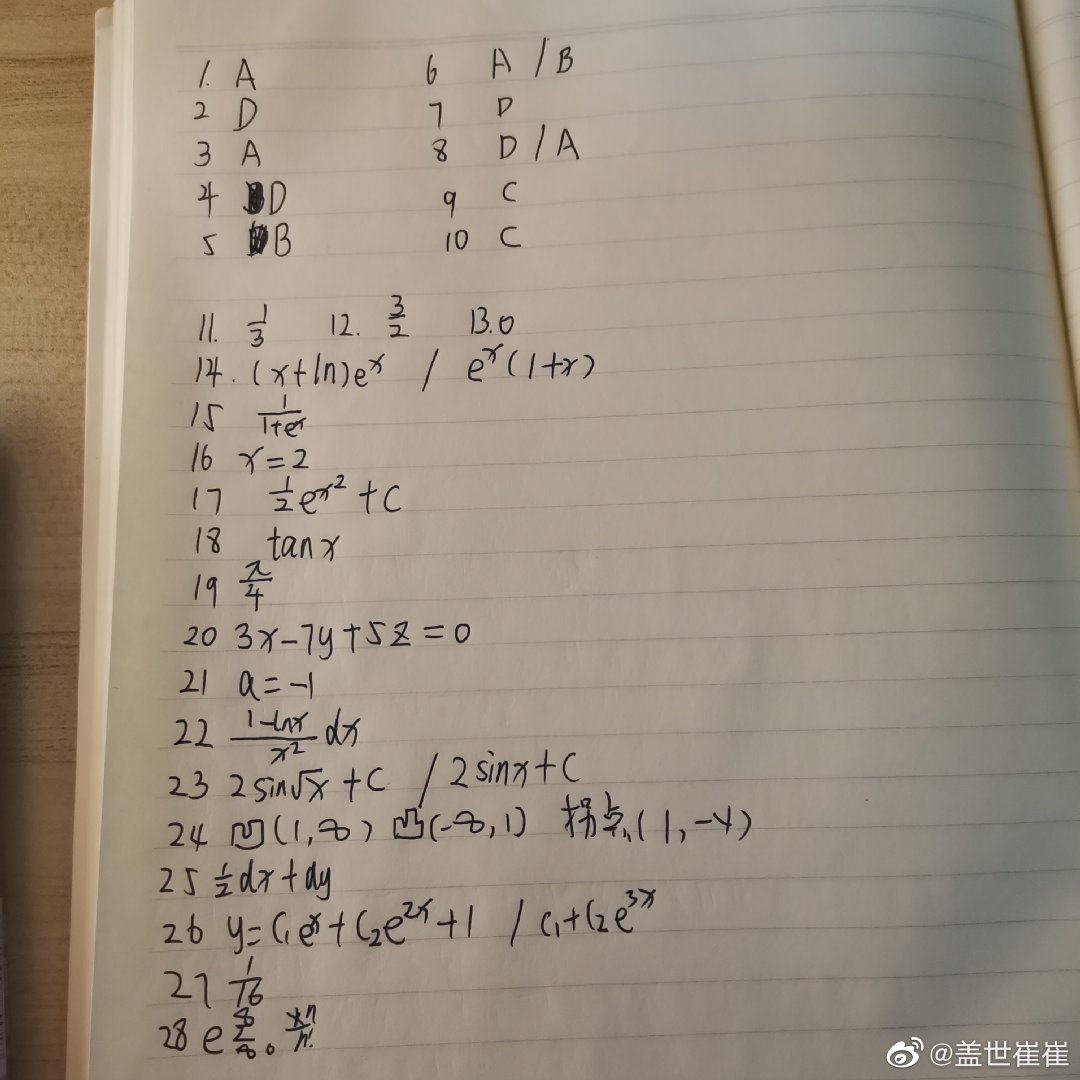 1. A 6 A / B
2 D 7 D
3 A 8 D / A
4 D 9 C
5 B 10 C
11. 1/3 12. 3/2 13.0
14. (x+ln)eˣ / eˣ(1+x)
15 1/(1+eˣ)
16 x=2
17 1/2 e^x² + C
18 tanx
19 π/4
20 3x-7y+5z=0
21 a=-1
22 (1-lnx)/x² dx
23 2sin√x + C / 2sinx+C
24 凹(1,∞) 凸(-∞,1) 拐点(1,-4)
25 1/2 dx+dy
26 y=C₁eˣ+C₂e^2x+1 / C₁+C₂e^3x
27 1/16
28 e xⁿ/n!
@盖世崔崔